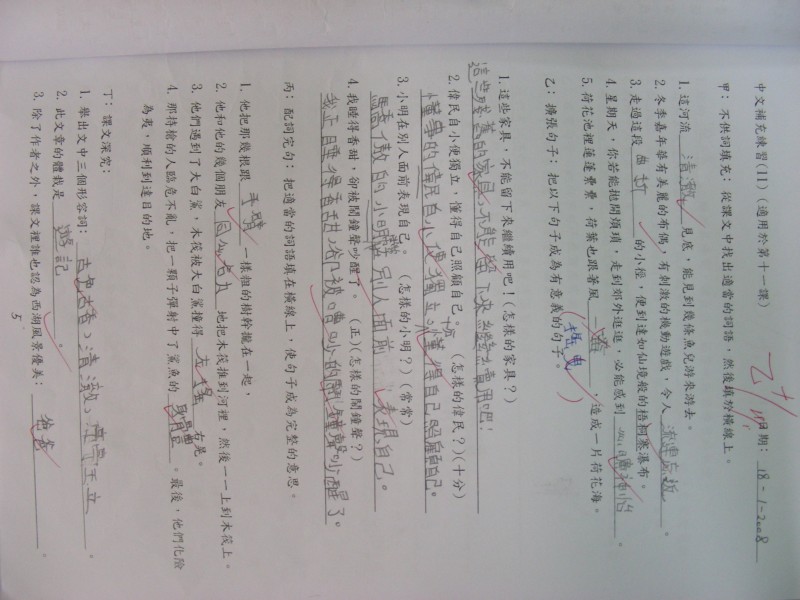 中文補充練習(11) (適用於第十一課) 日期：18-1-2008
乙+
甲：不供詞填充：從課文中找出適當的詞語，然後填於橫線上。
1. 這河流 清澈 見底，能見到幾條魚兒游來游去。
2. 冬季嘉年華有美麗的布偶，有刺激的機動遊戲，令人 流連忘返 。
3. 走過這段 曲折 的小徑，便到達如仙境般的梧桐寨瀑布。
4. 星期天，你若能拋開煩瑣，走到郊外逛逛，必能感到 。
5. 荷花池裡蓮蓬纍纍，荷葉也跟著風 ，造成一片荷花海。
(搖曳)
乙：擴張句子：把以下句子成為有意義的句子。
1. 這些家具，不能留下來繼續用吧！(怎樣的家具？)
這些殘舊的家具，不能留下來繼續用吧！
2. 偉民自小便獨立，懂得自己照顧自己。 (怎樣的偉民？)(十分)
懂事的偉民自小便獨立，十分懂得自己照顧自己。
3. 小明在別人面前表現自己。 (怎樣的小明？)(常常)
驕傲的小明常在別人面前 表現自己。
4. 我睡得香甜，卻被鬧鐘聲吵醒了。 (正)(怎樣的鬧鐘聲？)
我正睡得香甜，卻被 的鬧鐘聲吵醒了。
丙：配詞完句：把適當的詞語填在橫線上，使句子成為完整的意思。
1. 他把那幾根跟 手臂 一樣粗的樹幹攏在一起，
2. 他和他的幾個朋友 地把木筏推到河裡，然後一一上到木筏上。
3. 他們遇到了大白鯊，木筏被大白鯊撞得 左搖 右晃。
4. 那持槍的人臨危不亂，把一顆子彈射中了鯊魚的 。最後，他們化險
為夷，順利到達目的地。
丁：課文深究：
1. 舉出文中三個形容詞： 、清澈、 立 。
2. 此文章的體裁是 遊記 。
3. 除了作者之外，課文裡誰也認為西湖風景優美： 爸爸 。
5